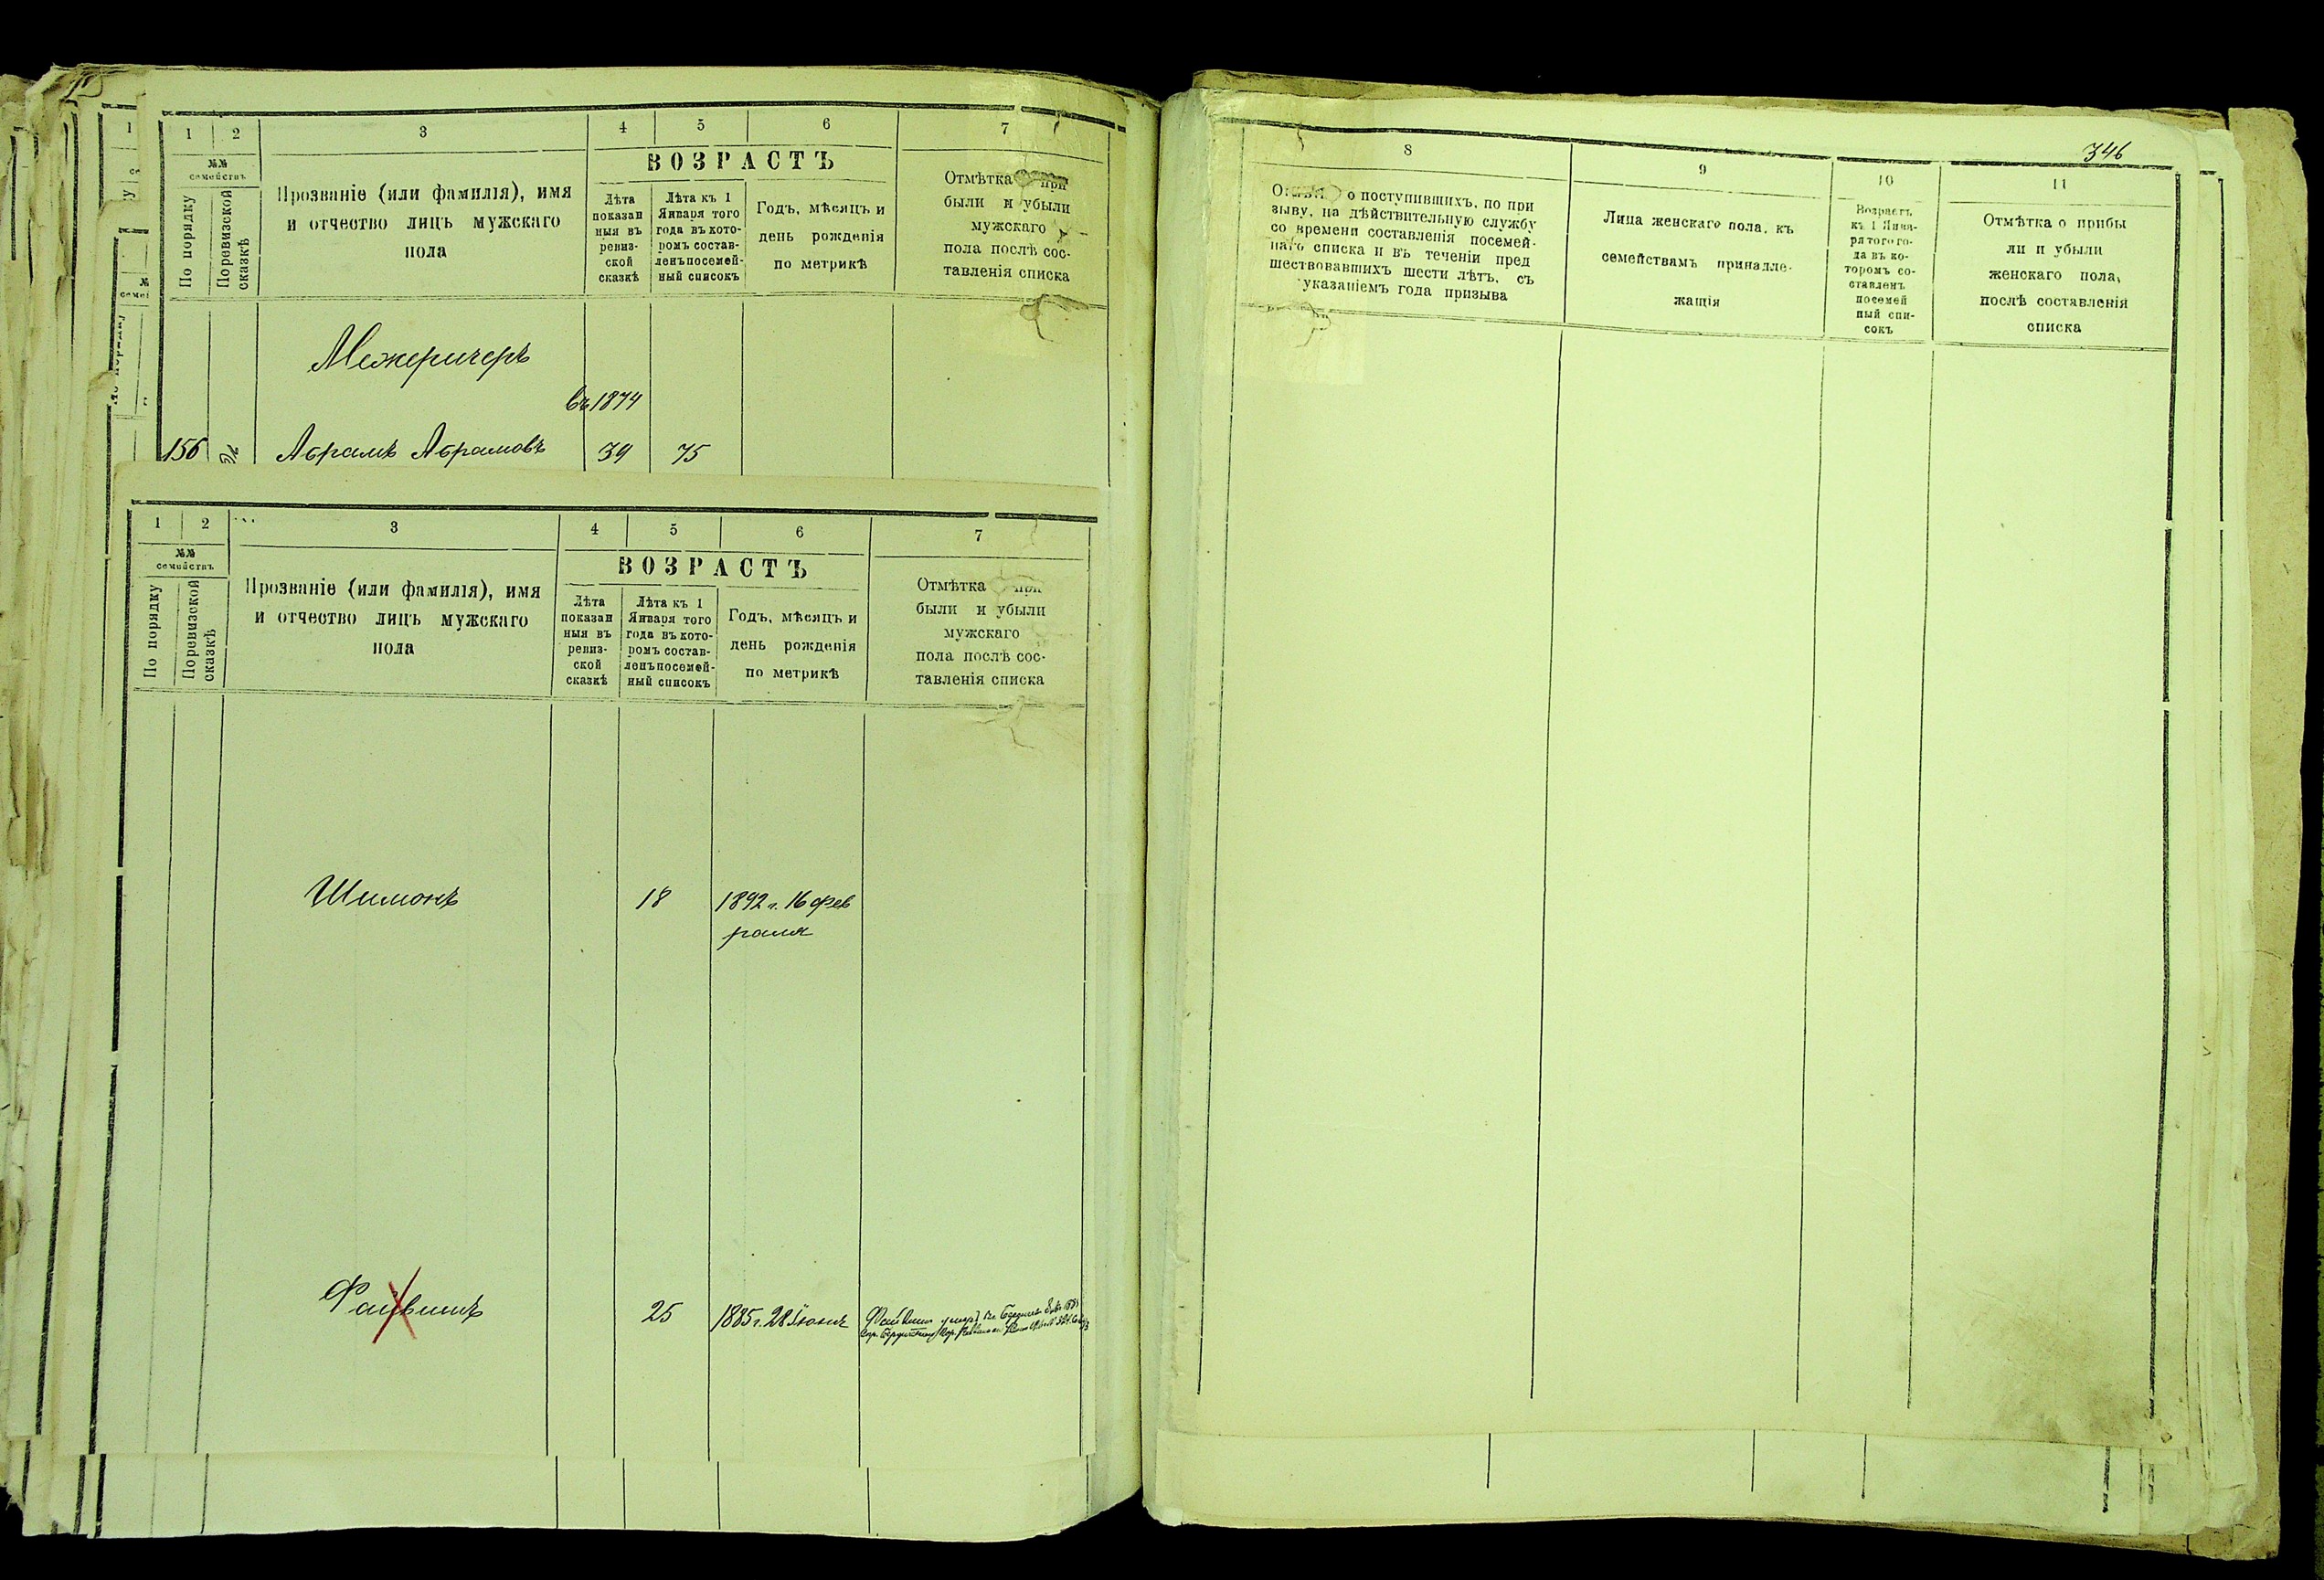 1
1 2 3 4 5 6 7
№№
семействъ
По порядку
По ревизской
сказкѣ
Прозваніе (или фамилія), имя
и отчество лицъ мужскаго
пола
ВОЗРАСТЪ
Лѣта
показан
ныя въ
ревиз-
ской
сказкѣ
Лѣта къ 1
Января того
года въ кото-
ромъ состав-
ленъ посемей-
ный списокъ
Годъ, мѣсяцъ и
день рожденія
по метрикѣ
Отмѣтка при
были и убыли
мужскаго
пола послѣ сос-
тавленія списка
Межеричеръ
въ 1874
156 Абрамъ Абрамовъ 39 75
1 2 3 4 5 6 7
№№
семействъ
По порядку
По ревизской
сказкѣ
Прозваніе (или фамилія), имя
и отчество лицъ мужскаго
пола
ВОЗРАСТЪ
Лѣта
показан
ныя въ
ревиз-
ской
сказкѣ
Лѣта къ 1
Января того
года въ кото-
ромъ состав-
ленъ посемей-
ный списокъ
Годъ, мѣсяцъ и
день рожденія
по метрикѣ
Отмѣтка при
были и убыли
мужскаго
пола послѣ сос-
тавленія списка
Шимонъ 18 1892 г. 16 фев
раля
Файвишъ 25 1885 г. 28 Іюня
Файвишъ умеръ
346
8 9 10 11
о поступившихъ, по при
зыву, на дѣйствительную службу
со времени составленія посемей-
наго списка и въ теченіи пред
шествовавшихъ шести лѣтъ, съ
указаніемъ года призыва
Лица женскаго пола, къ
семействамъ принадле-
жащія
Возрастъ
къ 1 Янва-
ря того го-
да въ ко-
торомъ со-
ставленъ
посемей
ный спи-
сокъ
Отмѣтка о прибы
ли и убыли
женскаго пола,
послѣ составленія
списка